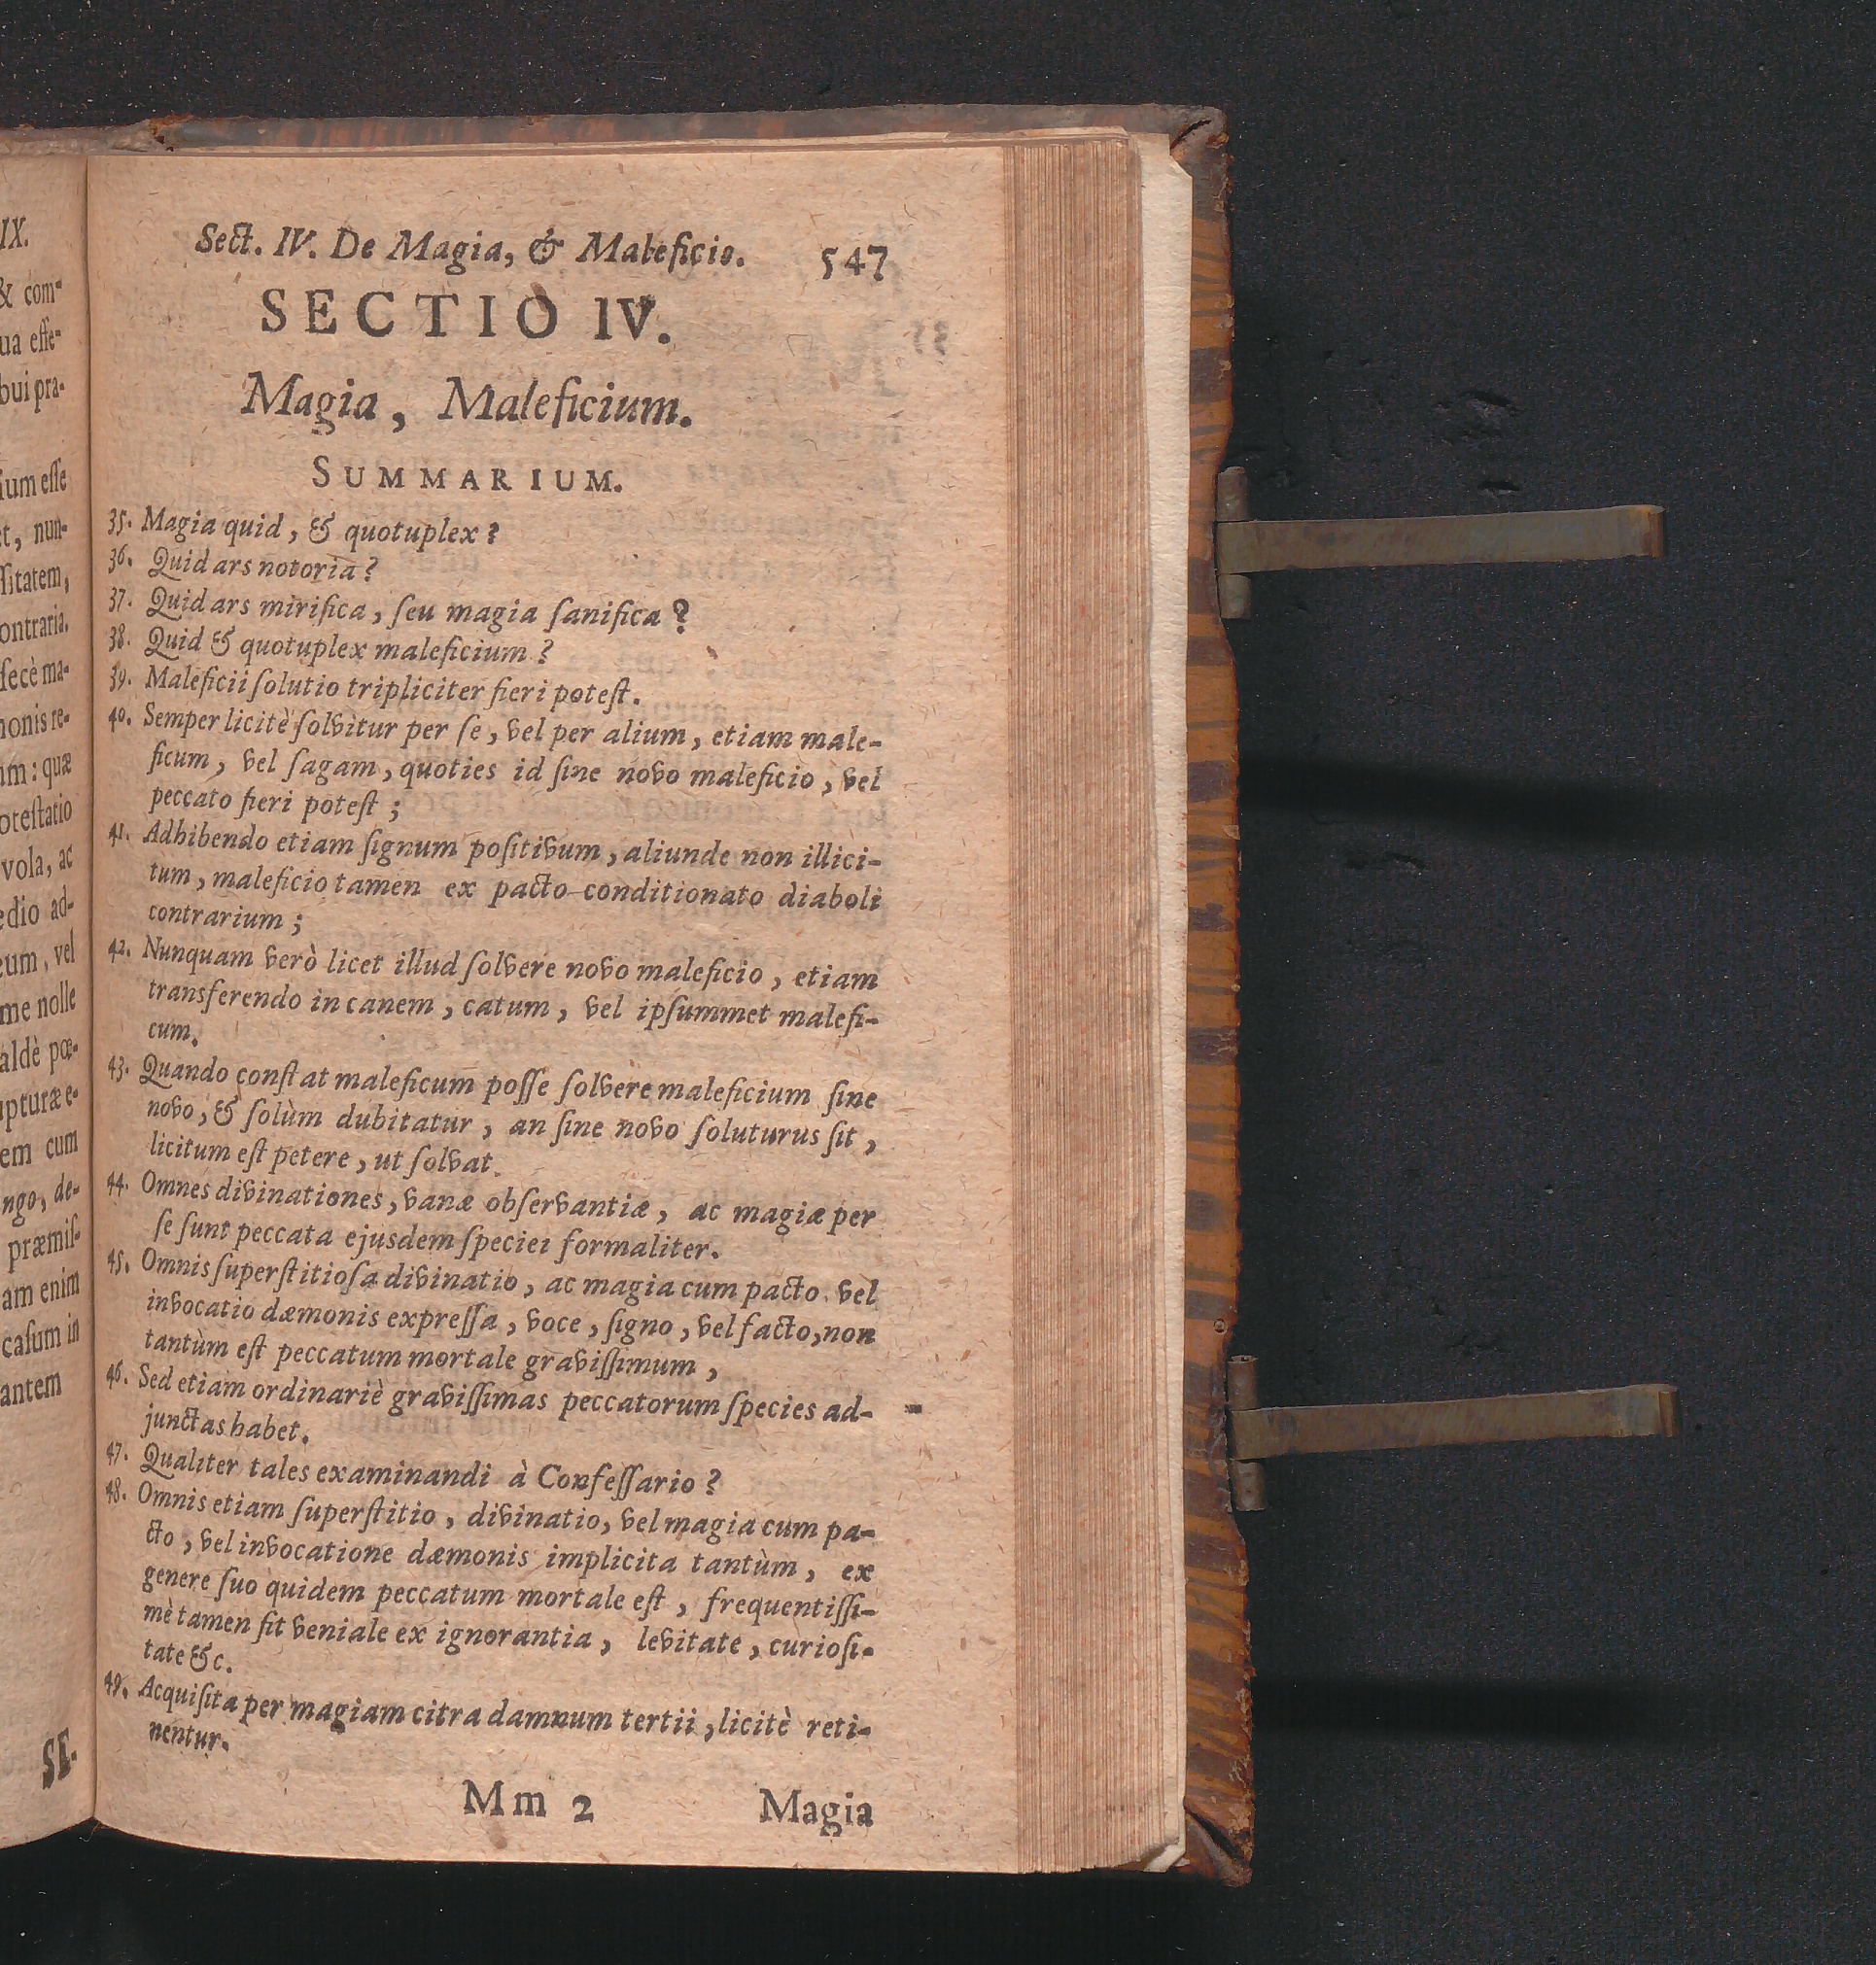 IX.
& com-
ua esse-
bui pra-
ium esse
et, nun-
ssitatem,
ontraria.
fecè ma-
monis re-
um: quæ
otestatio
vola, ac
edio ad-
eum, vel
me nolle
aldè pœ-
upturæ e-
em cum
ngo, de-
præmis-
am enim
casum in
antem
SE-
Sect. IV. De Magia, & Maleficio. 547
SECTIO IV.
Magia, Maleficium.
SUMMARIUM.
35. Magia quid, & quotuplex?
36. Quid ars notoria?
37. Quid ars mirifica, seu magia sanifica?
38. Quid & quotuplex maleficium?
39. Maleficii solutio tripliciter fieri potest.
40. Semper licitè solvitur per se, vel per alium, etiam male-
ficum, vel sagam, quoties id sine novo maleficio, vel
peccato fieri potest;
41. Adhibendo etiam signum positivum, aliunde non illici-
tum, maleficio tamen ex pacto conditionato diaboli
contrarium;
42. Nunquam verò licet illud solvere novo maleficio, etiam
transferendo in canem, catum, vel ipsummet malefi-
cum.
43. Quando constat maleficum posse solvere maleficium sine
novo, & solùm dubitatur, an sine novo soluturus sit,
licitum est petere, ut solvat.
44. Omnes divinationes, vanæ observantiæ, ac magiæ per
se sunt peccata ejusdem speciei formaliter.
45. Omnis superstitiosa divinatio, ac magia cum pacto vel
invocatio dæmonis expressa, voce, signo, vel facto, non
tantùm est peccatum mortale gravissimum,
46. Sed etiam ordinariè gravissimas peccatorum species ad-
junctas habet.
47. Qualiter tales examinandi à Confessario?
48. Omnis etiam superstitio, divinatio, vel magia cum pa-
cto, vel invocatione dæmonis implicita tantùm, ex
genere suo quidem peccatum mortale est, frequentissi-
mè tamen fit veniale ex ignorantia, levitate, curiosi-
tate &c.
49. Acquisita per magiam citra damnum tertii, licitè reti-
nentur.
Mm 2 Magia